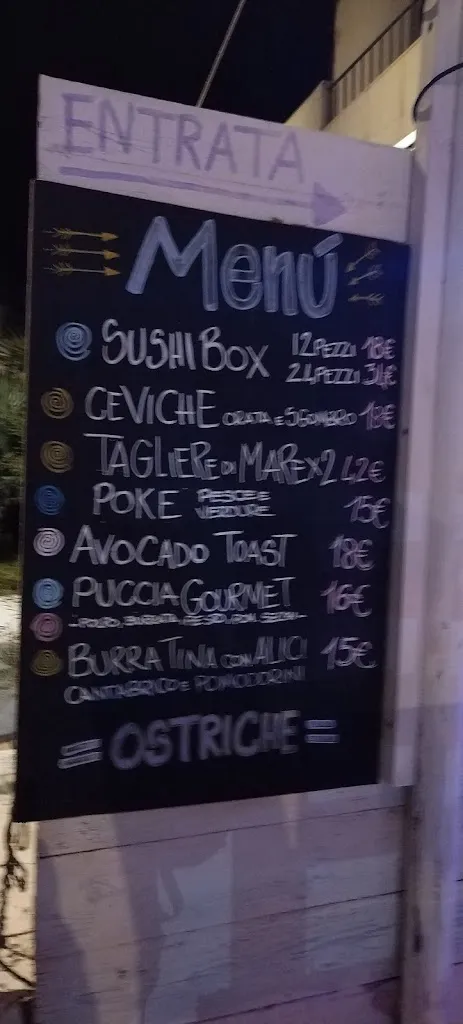 ENTRATA
Menú
SUSHI BOX 12 PEZZI 18€
24 PEZZI 34€
CEVICHE ORATA E SGOMBRO 18€
TAGLIERE DI MARE X2 42€
POKE PESCE E VERDURE 15€
AVOCADO TOAST 18€
PUCCIA GOURMET 16€
POLPO, BURRATA, PESTO, POM. SECCHI
BURRATINA CON ALICI 15€
CANTABRICO E POMODORINI
= OSTRICHE =